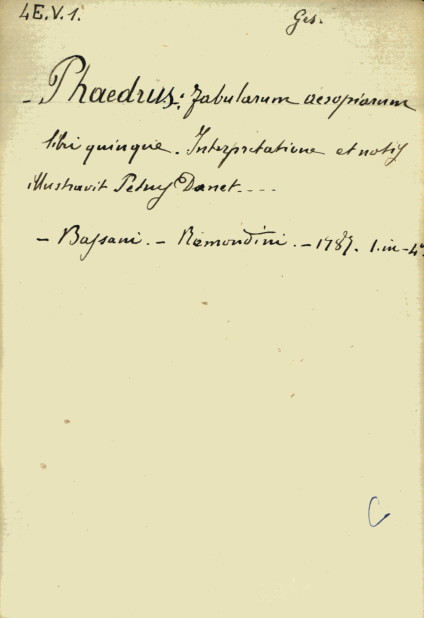 4E.V.1.
Ges.
- Phaedrus: Fabularum aesopiarum
libri quinque. Interpretatione et notis
illustravit Petrus Danet....
- Bassani. - Remondini. - 1787. 1. in-4º.
C